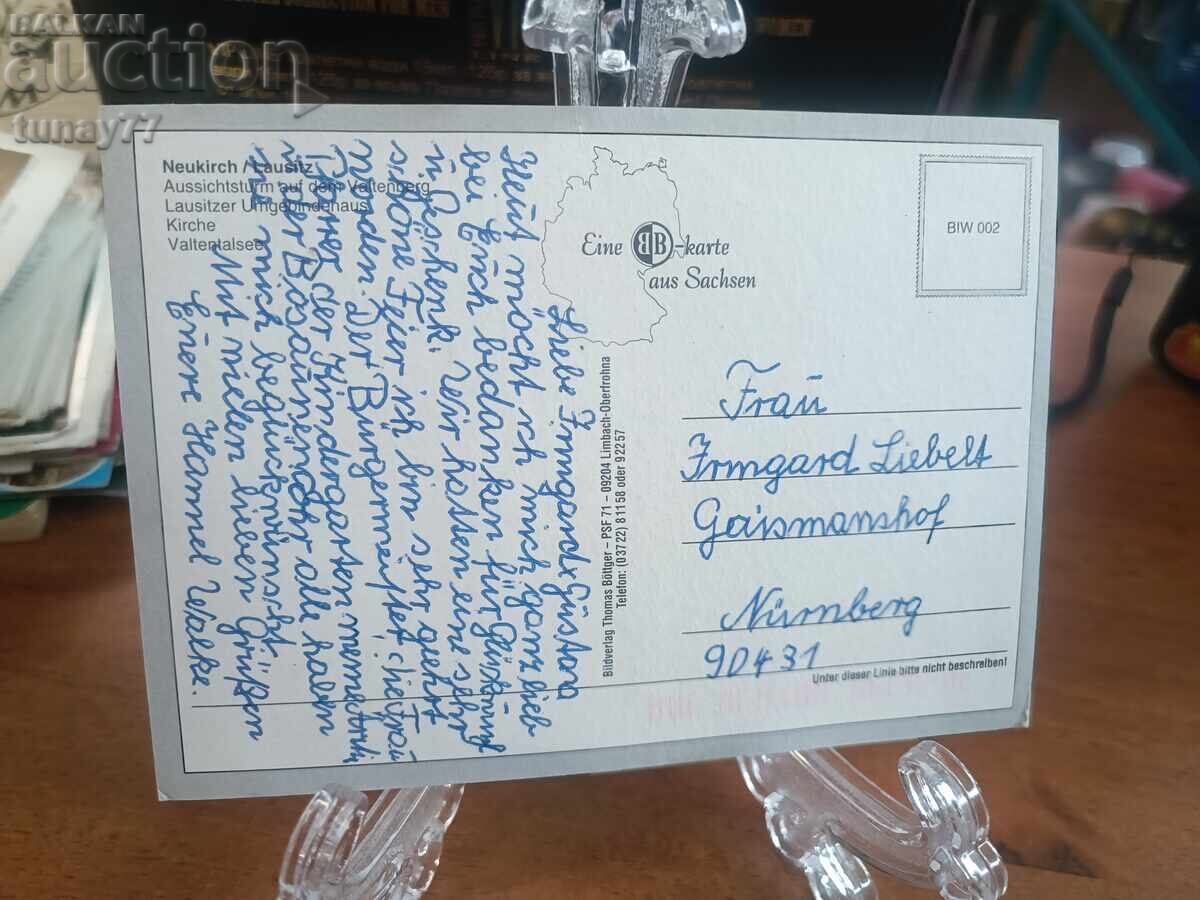 BALKAN
auction
tunay77
Neukirch / Lausitz
Aussichtsturm auf dem Valtenberg
Lausitzer Umgebindehaus
Kirche
Valtentalsee
Eine BB-karte
aus Sachsen
BIW 002
Liebe Irmgard + Gustara
Heut möcht ich mich ganz lieb
bei Euch bedanken für Glückwünsch
u Geschenk. Wir hatten eine sehr
schöne Feier ich bin sehr geehrt
worden. Der Bürgermeister, die
Pfarrer der Kindergarten
u der Posaunenchor alle haben
mich beglückwünscht.
Mit vielen lieben Grüßen
Eure Hannel Walke.
Bildverlag Thomas Böttger – PSF 71 – 09204 Limbach-Oberfrohna
Telefon: (03722) 81158 oder 92257
Frau
Irmgard Liebelt
Gaismanshof
Nürnberg
90431
Unter dieser Linie bitte nicht beschreiben!